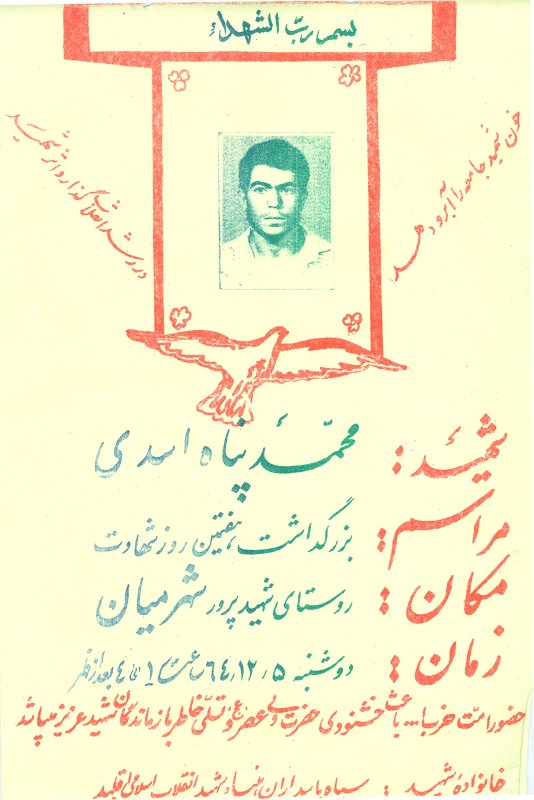 بسم ربّ الشهداء
خون شهید جامعه را آبرو دهد
در رشد انقلاب گذارد اثر شهید
شهید : محمّد پناه اسدی
مراسم : بزرگداشت هفتمین روز شهادت
مکان : روستای شهید پرور شهرمیان
زمان : دوشنبه ۶۴٫۱۲٫۵ ساعت ۱ الی ٤ بعدازظهر
حضور امّت حزب‌ا... باعث خشنودی حضرت ولی عصر (عج) و تسلّی خاطر بازماندگان شهید عزیز میباشد
خانوادهٔ شهید : سپاه پاسداران ، بنیاد شهید انقلاب اسلامی اقلید